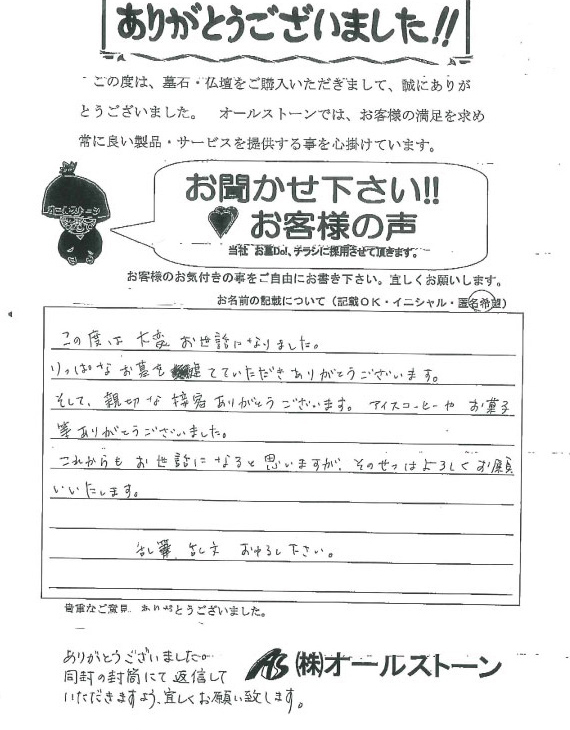 ありがとうございました!!
この度は、墓石・仏壇をご購入いただきまして、誠にありが
とうございました。 オールストーンでは、お客様の満足を求め
常に良い製品・サービスを提供する事を心掛けています。
オールストーン
お聞かせ下さい!!
お客様の声
当社 お墓Do!、チラシに採用させて頂きます。
お客様のお気付きの事をご自由にお書き下さい。宜しくお願いします。
お名前の記載について(記載OK・イニシャル・匿名希望)
この度は大変お世話になりました。
りっぱなお墓を建てていただきありがとうございます。
そして、親切な接客ありがとうございます。アイスコーヒーや お菓子
等ありがとうございました。
これからも お世話になると思いますが、そのせつはよろしくお願
いいたします。
乱筆 乱文 おゆるし下さい。
貴重なご意見、ありがとうございました。
ありがとうございました。
同封の封筒にて返信して
いただきますよう、宜しくお願い致します。
AS (株)オールストーン